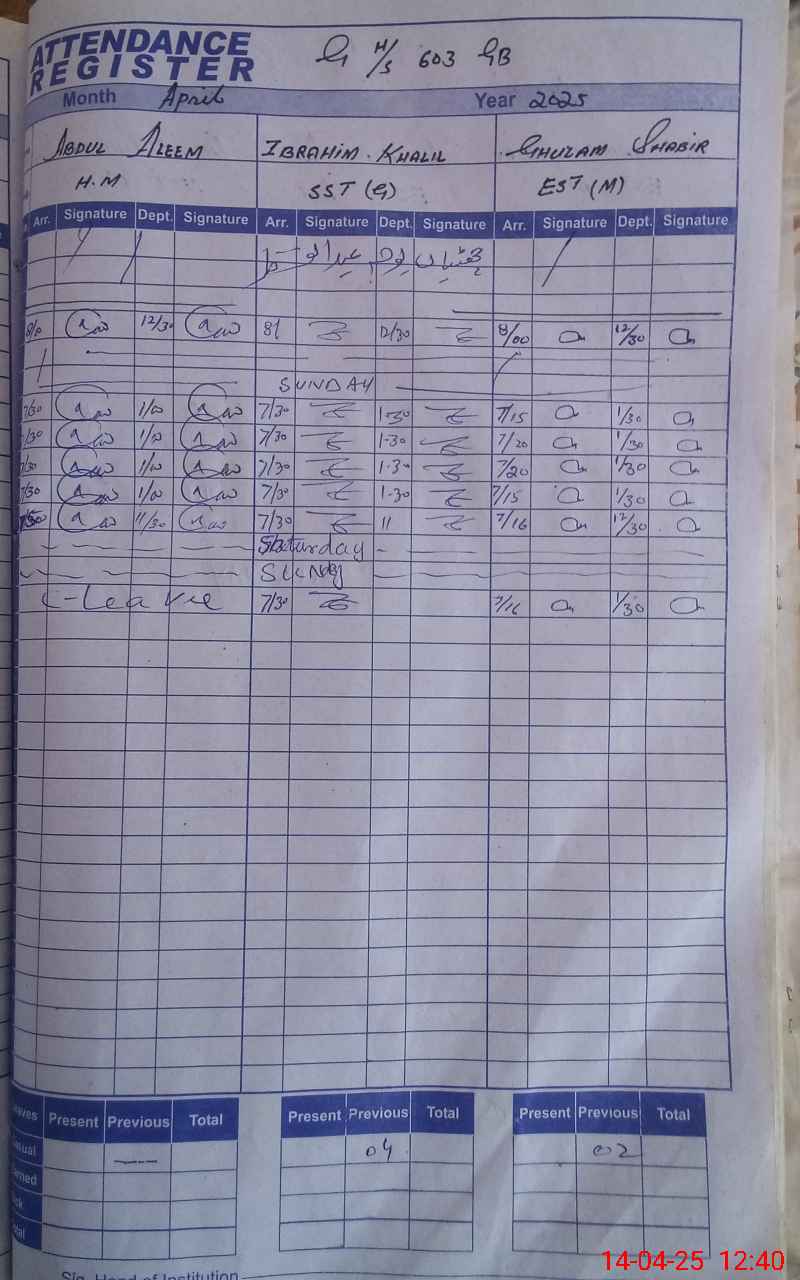 ATTENDANCE REGISTER G H/S 603 GB
Month April Year 2025
ABDUL ALEEM IBRAHIM KHALIL GHULAM SHABIR
H.M SST (G) EST (M)
Arr. Signature Dept. Signature Arr. Signature Dept. Signature Arr. Signature Dept. Signature
12/30 8/ 12/30 8/00 12/30
SUNDAY
7/30 1/00 7/30 1-30 7/15 1/30
7/30 1/00 7/30 1-30 7/20 1/30
7/30 1/00 7/30 1-30 7/20 1/30
7/30 1/00 7/30 1-30 7/15 1/30
11/30 7/30 11 7/16 12/30
Saturday
SUNday
C-Leave 7/30 7/16 1/30
Present Previous Total Present Previous Total Present Previous Total
04 02
Sig. Head of Institution
14-04-25 12:40